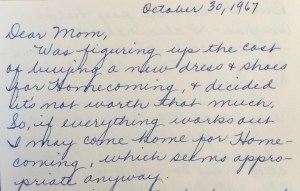 October 30, 1967
Dear Mom,
Was figuring up the cost
of buying a new dress & shoes
for Homecoming, & decided
it's not worth that much.
So, if everything works out
I may come home for Home-
coming, which seems appro-
priate anyway.